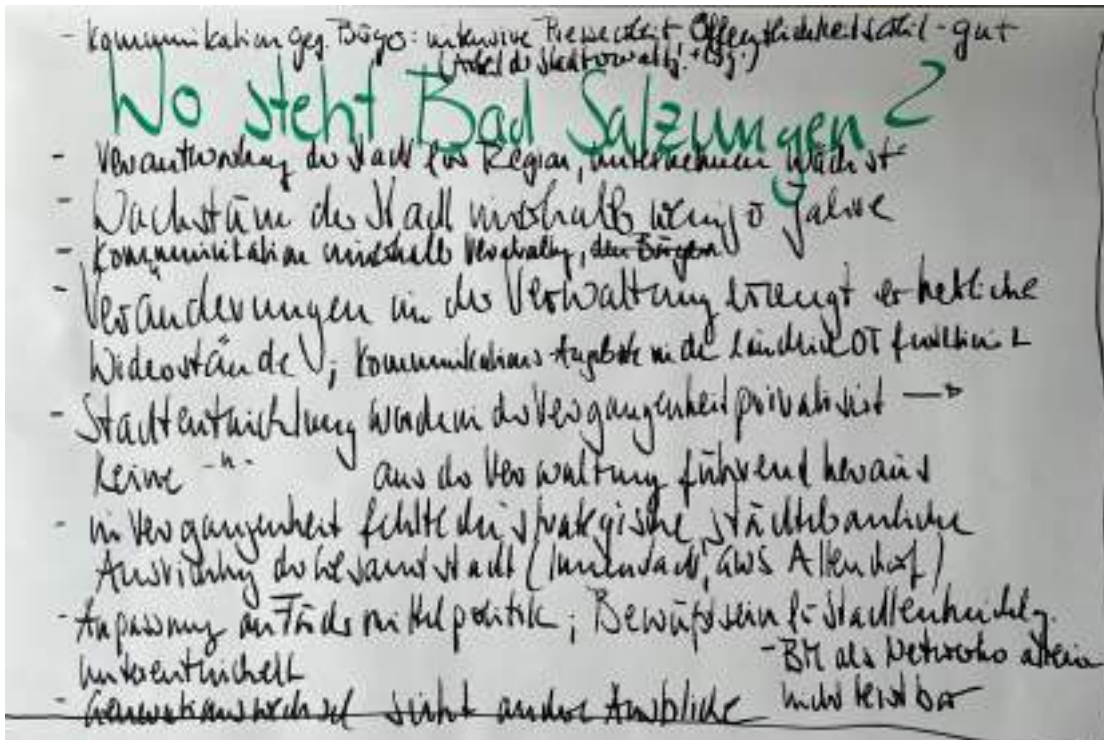 - Kommunikation geg. Bürger: intensive Pressearbeit, Öffentlichkeitsarb. - gut
(Arbeit der Stadtverwaltg.
Wo steht Bad Salzungen?
- Verantwortung der Stadt für Region, Unternehmen wächst
- Wachstum der Stadt innerhalb weniger Jahre
- Kommunikation innerhalb Verwaltg, den Bürgern
- Veränderungen in der Verwaltung erzeugt erhebliche
Widerstände; Kommunikations-Angebote in de ländlich OT funktioniert
- Stadtentwicklung wurde in der Vergangenheit privatisiert →
keine -"- aus der Verwaltung führend heraus
- in Vergangenheit fehlte die strategische, städtebauliche
Ausrichtg der Gesamtstadt (Innenstadt, aws Allendorf)
- Anpassung an Fördermittelpolitik; Bewußtsein für Stadtentwicklg.
unterentwickelt
- BM als Netzwerker allein
nicht leistbar
- Generationswechsel sieht andere Ausblicke